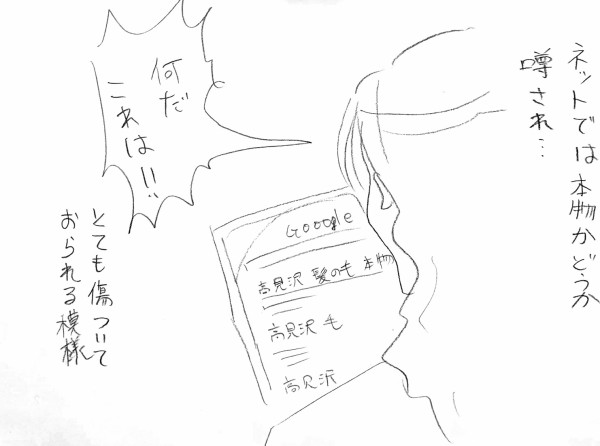 ネットでは本物かどうか
噂され…
何だ
これは!!
Gooogle
高見沢 髪の毛 本物
高見沢 毛
高見沢
とても傷ついて
おられる模様